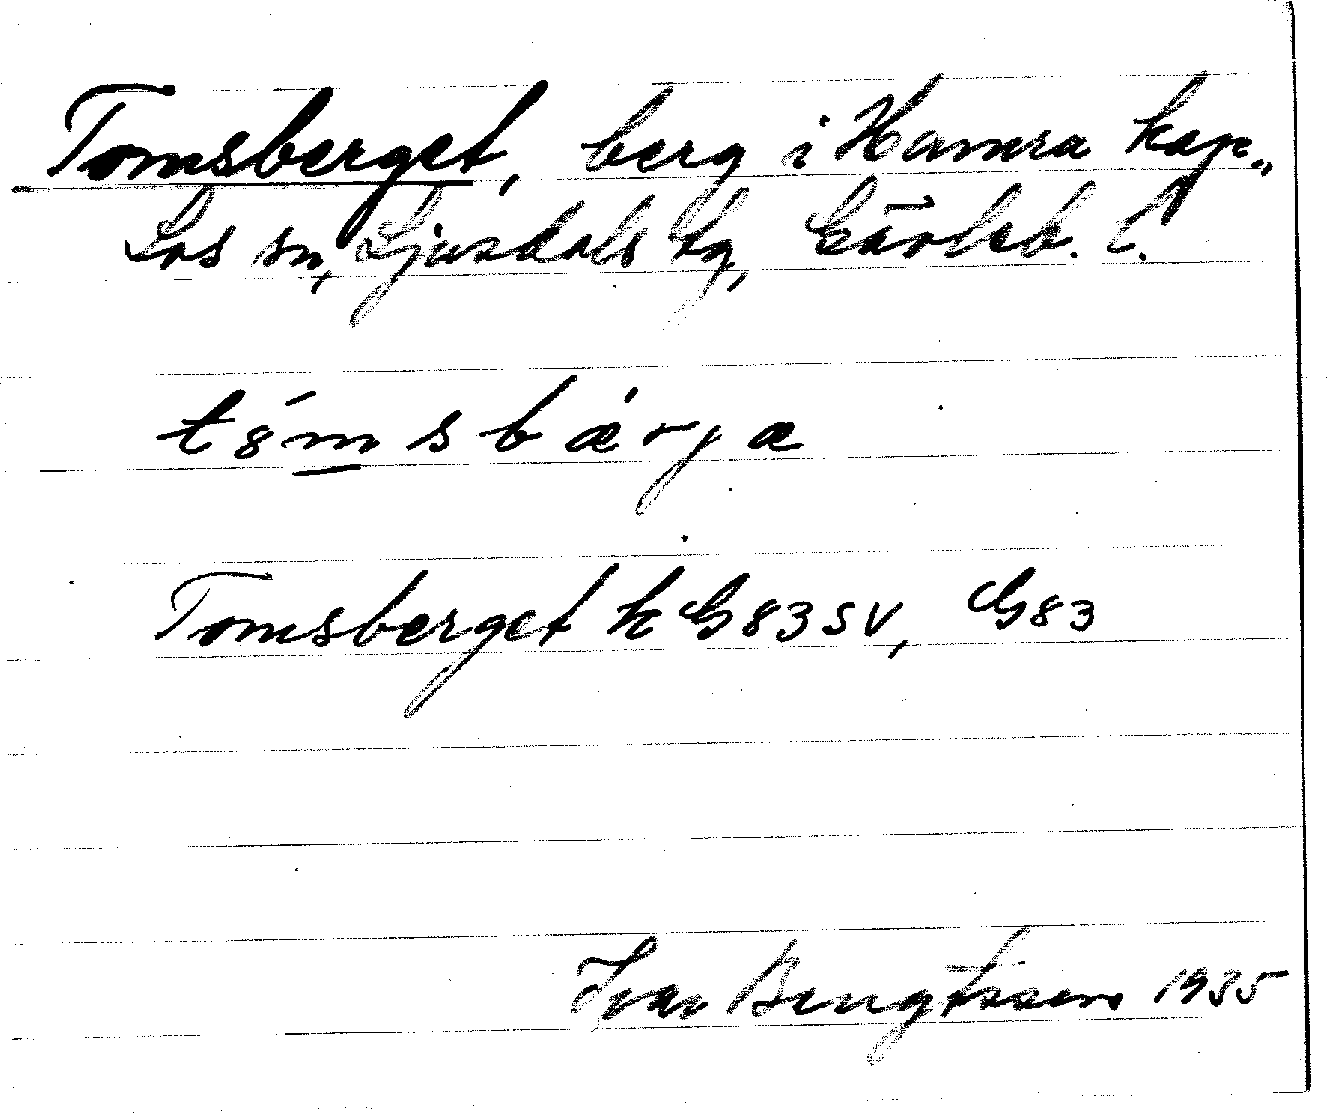 Tomsberget, berg i Hamra kap.,
Los sn, Ljusdals tg, Gävleb. l.
t8́m̲sbæ̀rjæ
Tomsberget k G83SV, G83
Ivar Bengtsson 1935